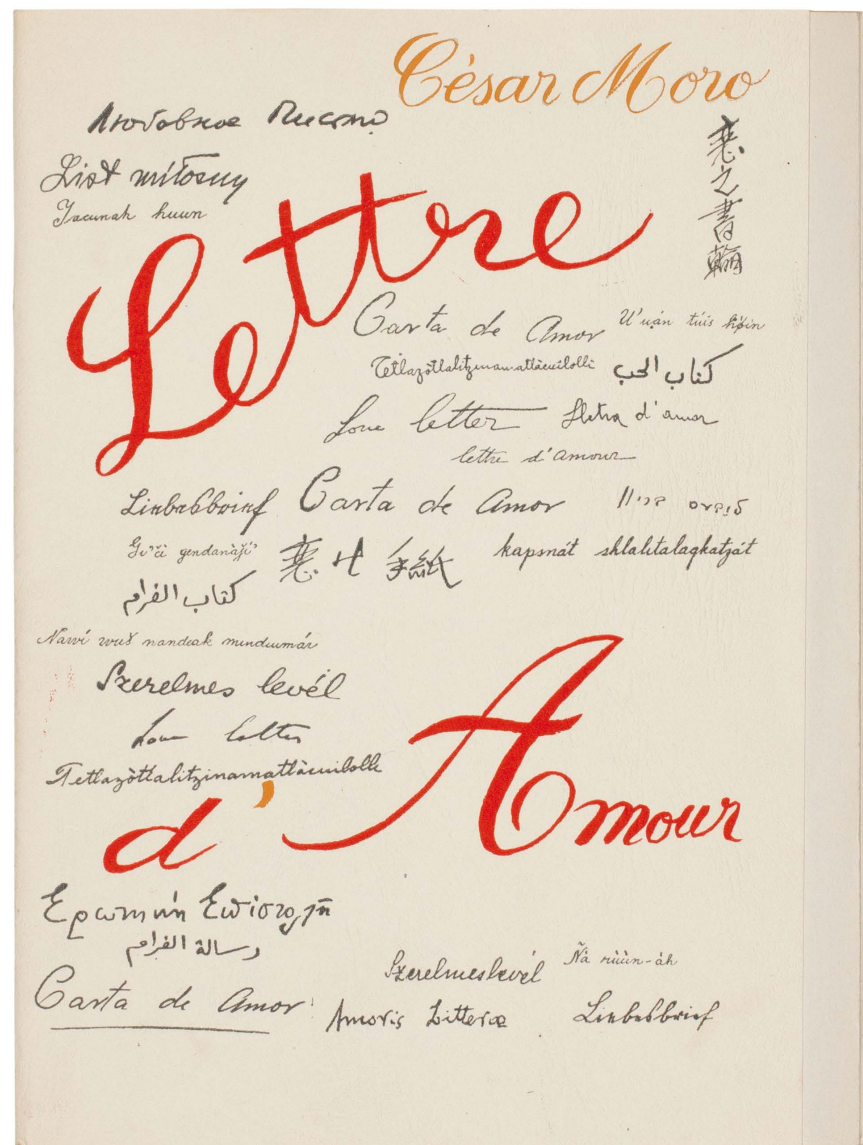 César Moro
Любовное Письмо
List miłosny
Yacunah huun
戀之書翰
Lettre
Carta de Amor
U'uán túis hǿin
Tètlazòtlalitzinamatlàcuilolli
كتاب الحب
Love letter
Lletra d'amor
lettre d'amour
Liebesbrief
Carta de Amor
戀 手紙
kapsnát shlalitalaqkatzát
كتاب الغرام
Nawí
nandeak mindiumár
Szerelmes levél
Love letter
Tetlazòtlalitzinamatlàcuilolli
d'Amour
Ερωτική Επιστολή
رسالة الغرام
Szerelmeslevél
Ñà rùùn-àh
Carta de Amor
Amoris Litteræ
Liebesbrief